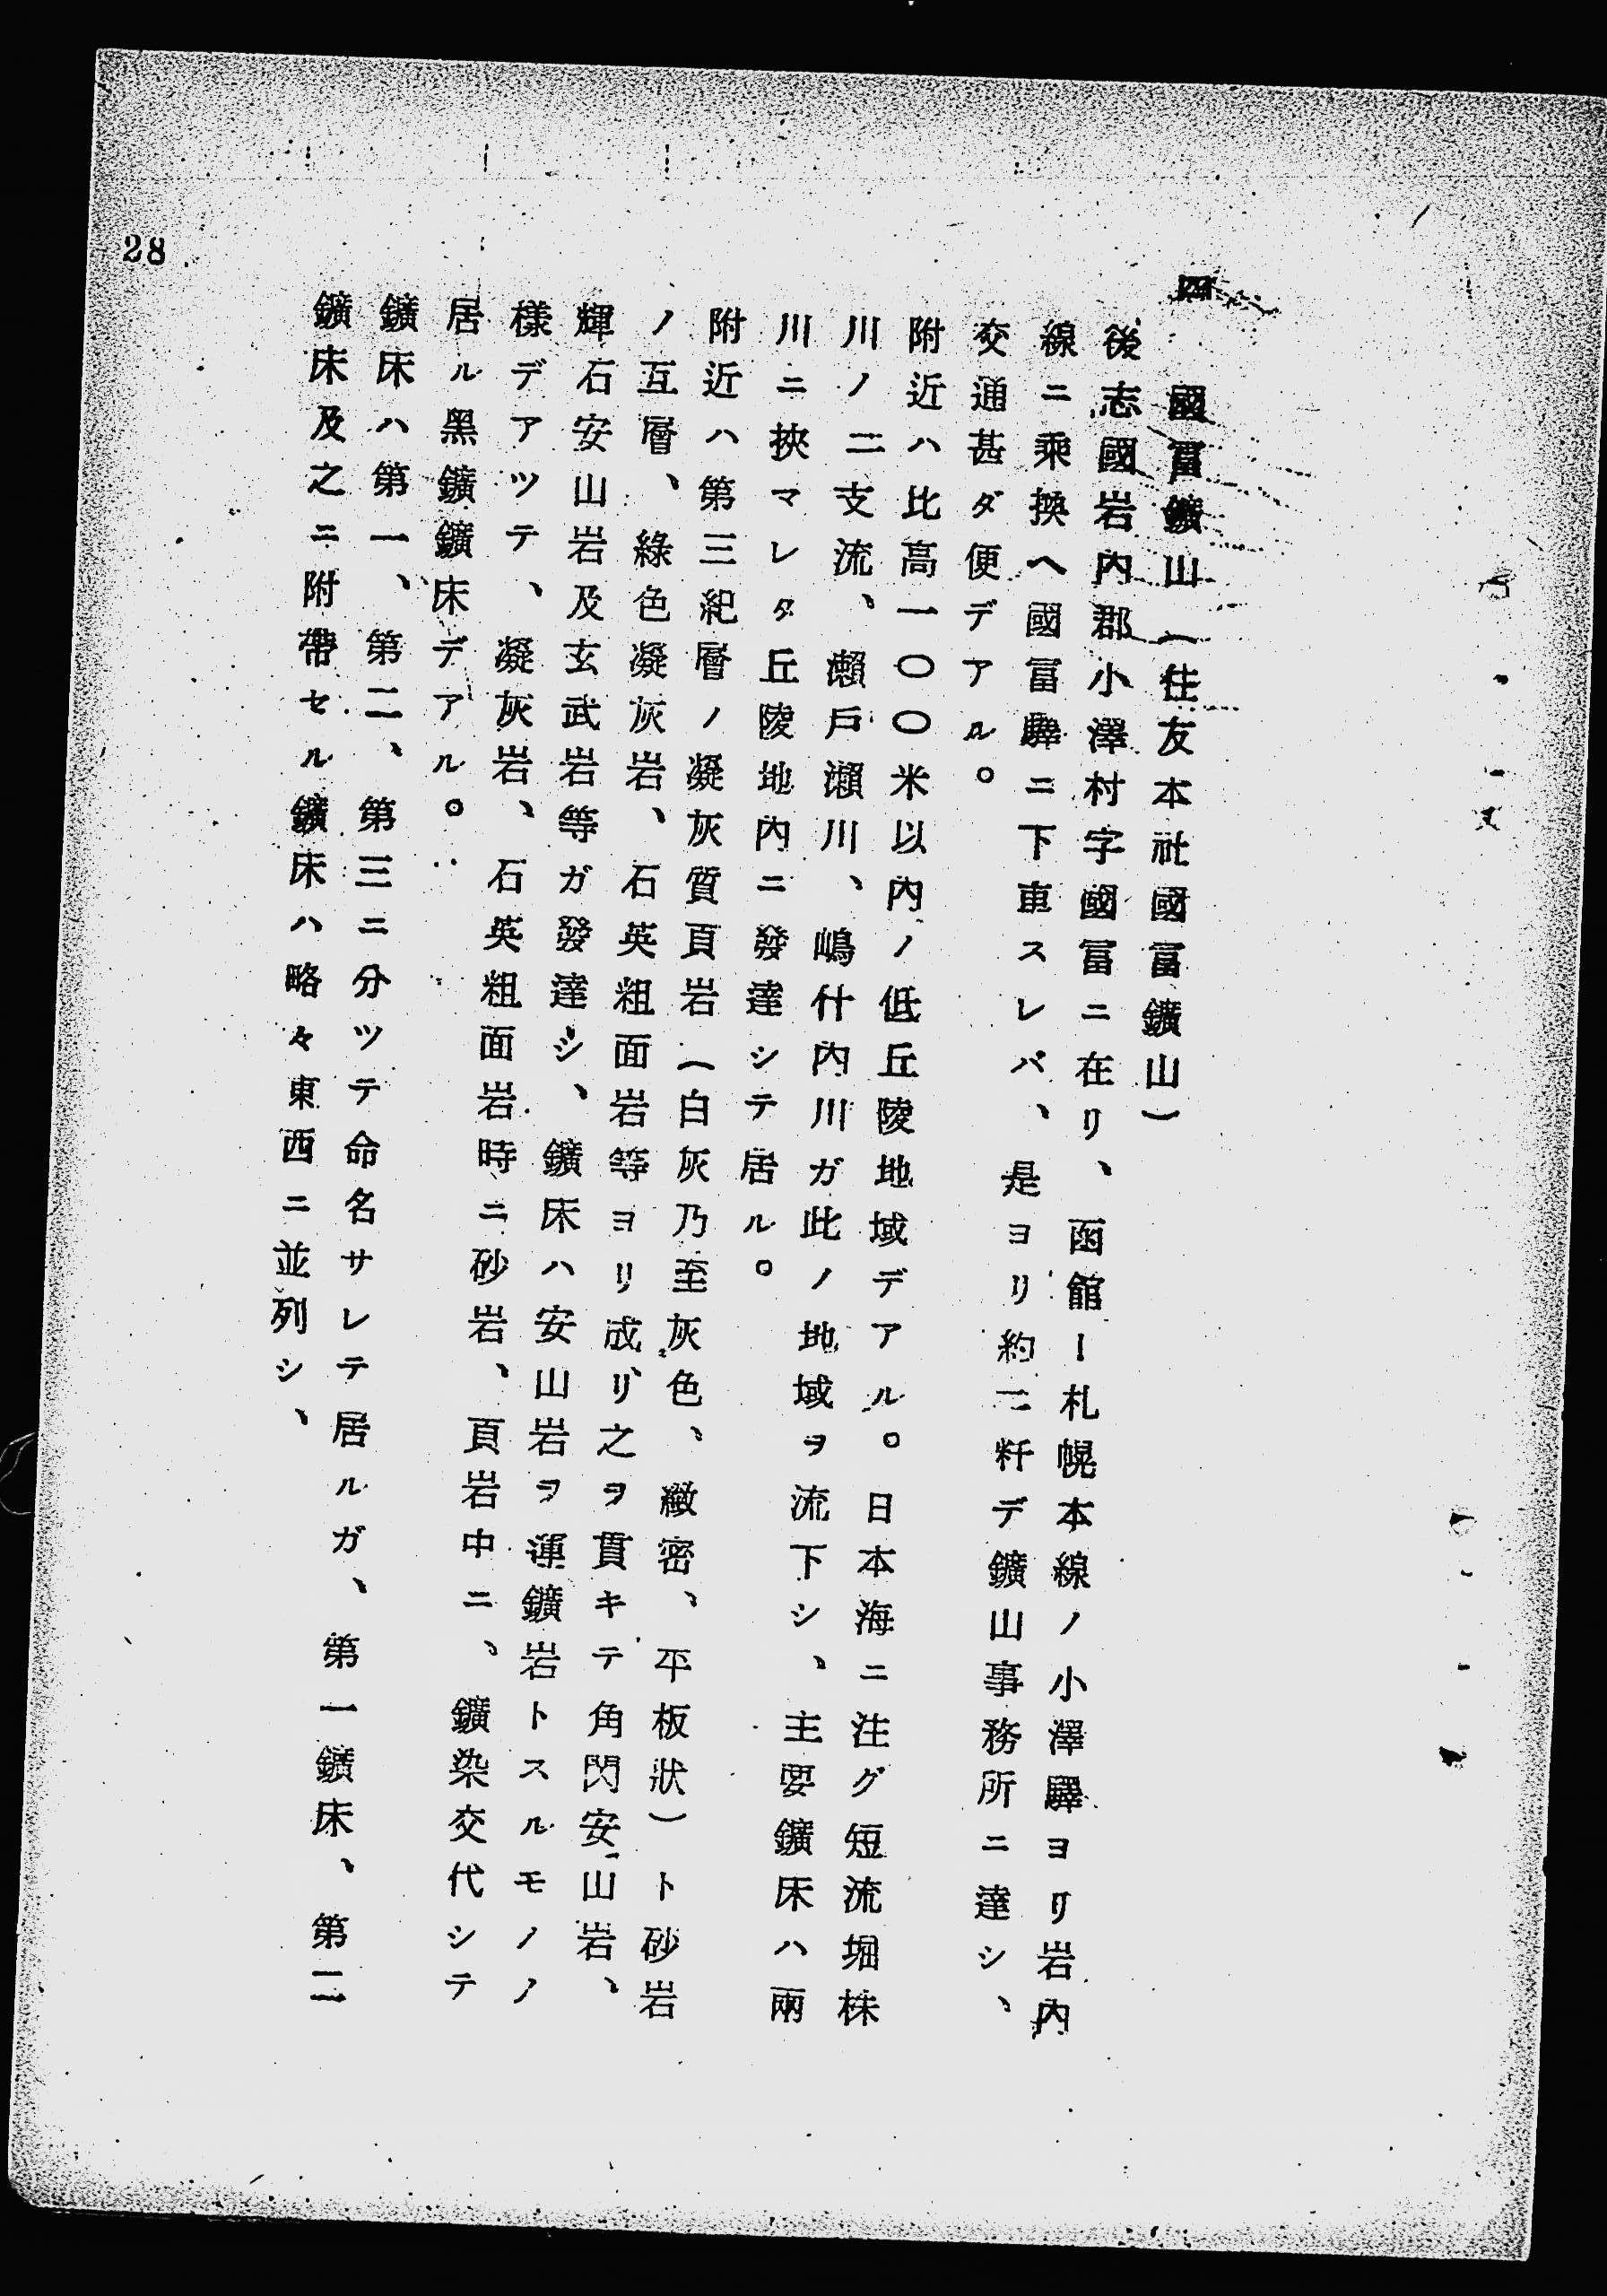 四　國冨鑛山（住友本社國冨鑛山）
後志國岩內郡小澤村字國冨ニ在リ、函館ー札幌本線ノ小澤驛ヨリ岩內
線ニ乘換ヘ國冨驛ニ下車スレバ、是ヨリ約二粁デ鑛山事務所ニ達シ、
交通甚ダ便デアル。
附近ハ比高一〇〇米以內ノ低丘陵地域デアル。日本海ニ注グ短流堀株
川ノ二支流、瀨戶瀨川、嶋什內川ガ此ノ地域ヲ流下シ、主要鑛床ハ兩
川ニ挾マレタ丘陵地內ニ發達シテ居ル。
附近ハ第三紀層ノ凝灰質頁岩（白灰乃至灰色、緻密、平板狀）ト砂岩
ノ互層、綠色凝灰岩、石英粗面岩等ヨリ成リ之ヲ貫キテ角閃安山岩、
輝石安山岩及玄武岩等ガ發達シ、鑛床ハ安山岩ヲ運鑛岩トスルモノノ
樣デアツテ、凝灰岩、石英粗面岩時ニ砂岩、頁岩中ニ、鑛染交代シテ
居ル黑鑛鑛床デアル。
鑛床ハ第一、第二、第三ニ分ツテ命名サレテ居ルガ、第一鑛床、第二
鑛床及之ニ附帶セル鑛床ハ略々東西ニ並列シ、
28